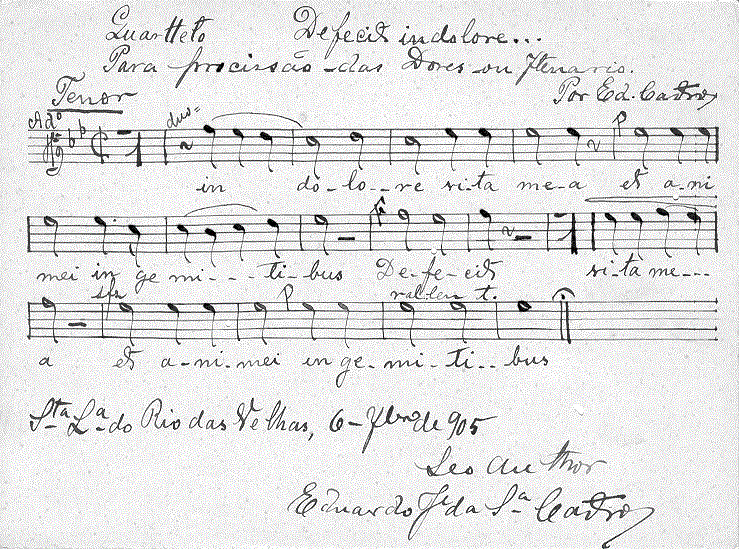 Quartteto Defecit in dolore...
Para procissão das Dores ou Stenario.
Tenor Por Ed. Castro
Ad.º duo=
P
in do-lo--re vi-ta me-a et a-ni
mei in ge mi---ti-bus De-fe-cit vi-ta me---
sfz P rallent.
a et a-ni-mei in ge-mi-ti--bus
Sta La do Rio das Velhas, 6-7bro de 905
Seo Author
Eduardo Je da Sa Castro